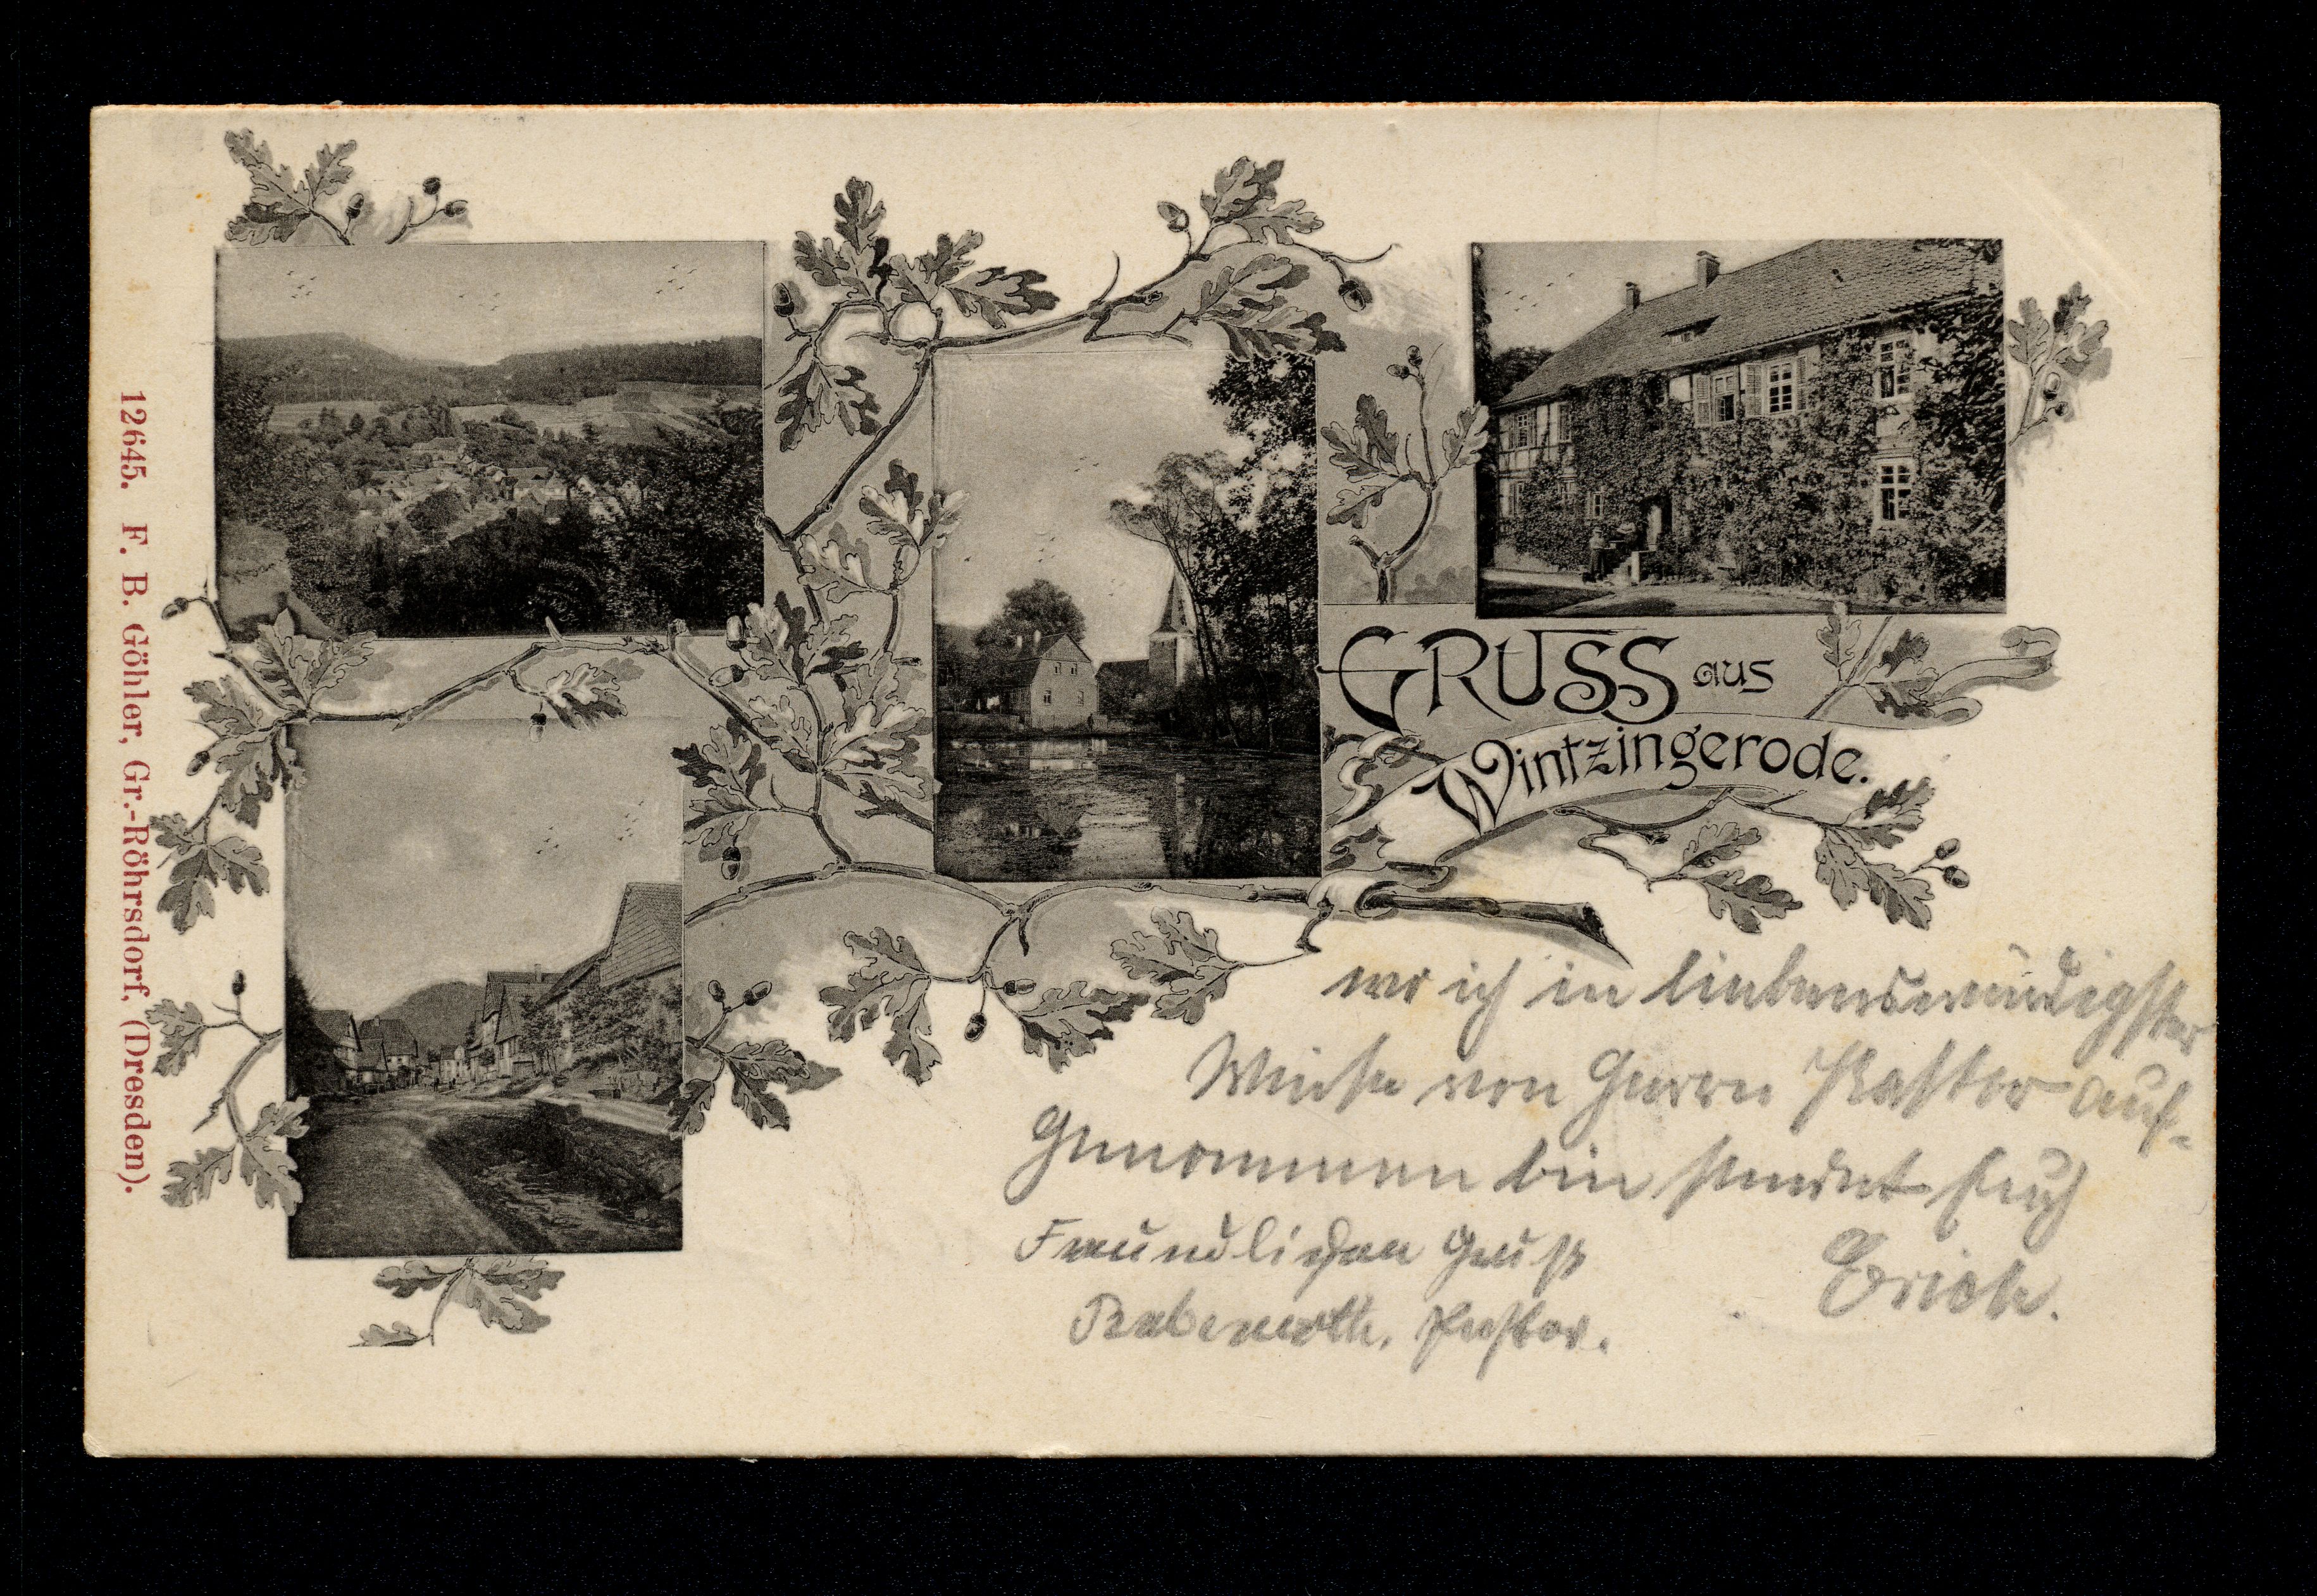 12645. F. B. Göhler, Gr.-Röhrsdorf, (Dresden).
GRUSS aus
Wintzingerode.
wo ich in liebenswürdigster
Weise von Herrn Pastor auf-
genommen bin sendet Euch
Erich.
Freundlichen Gruß
Pastor.